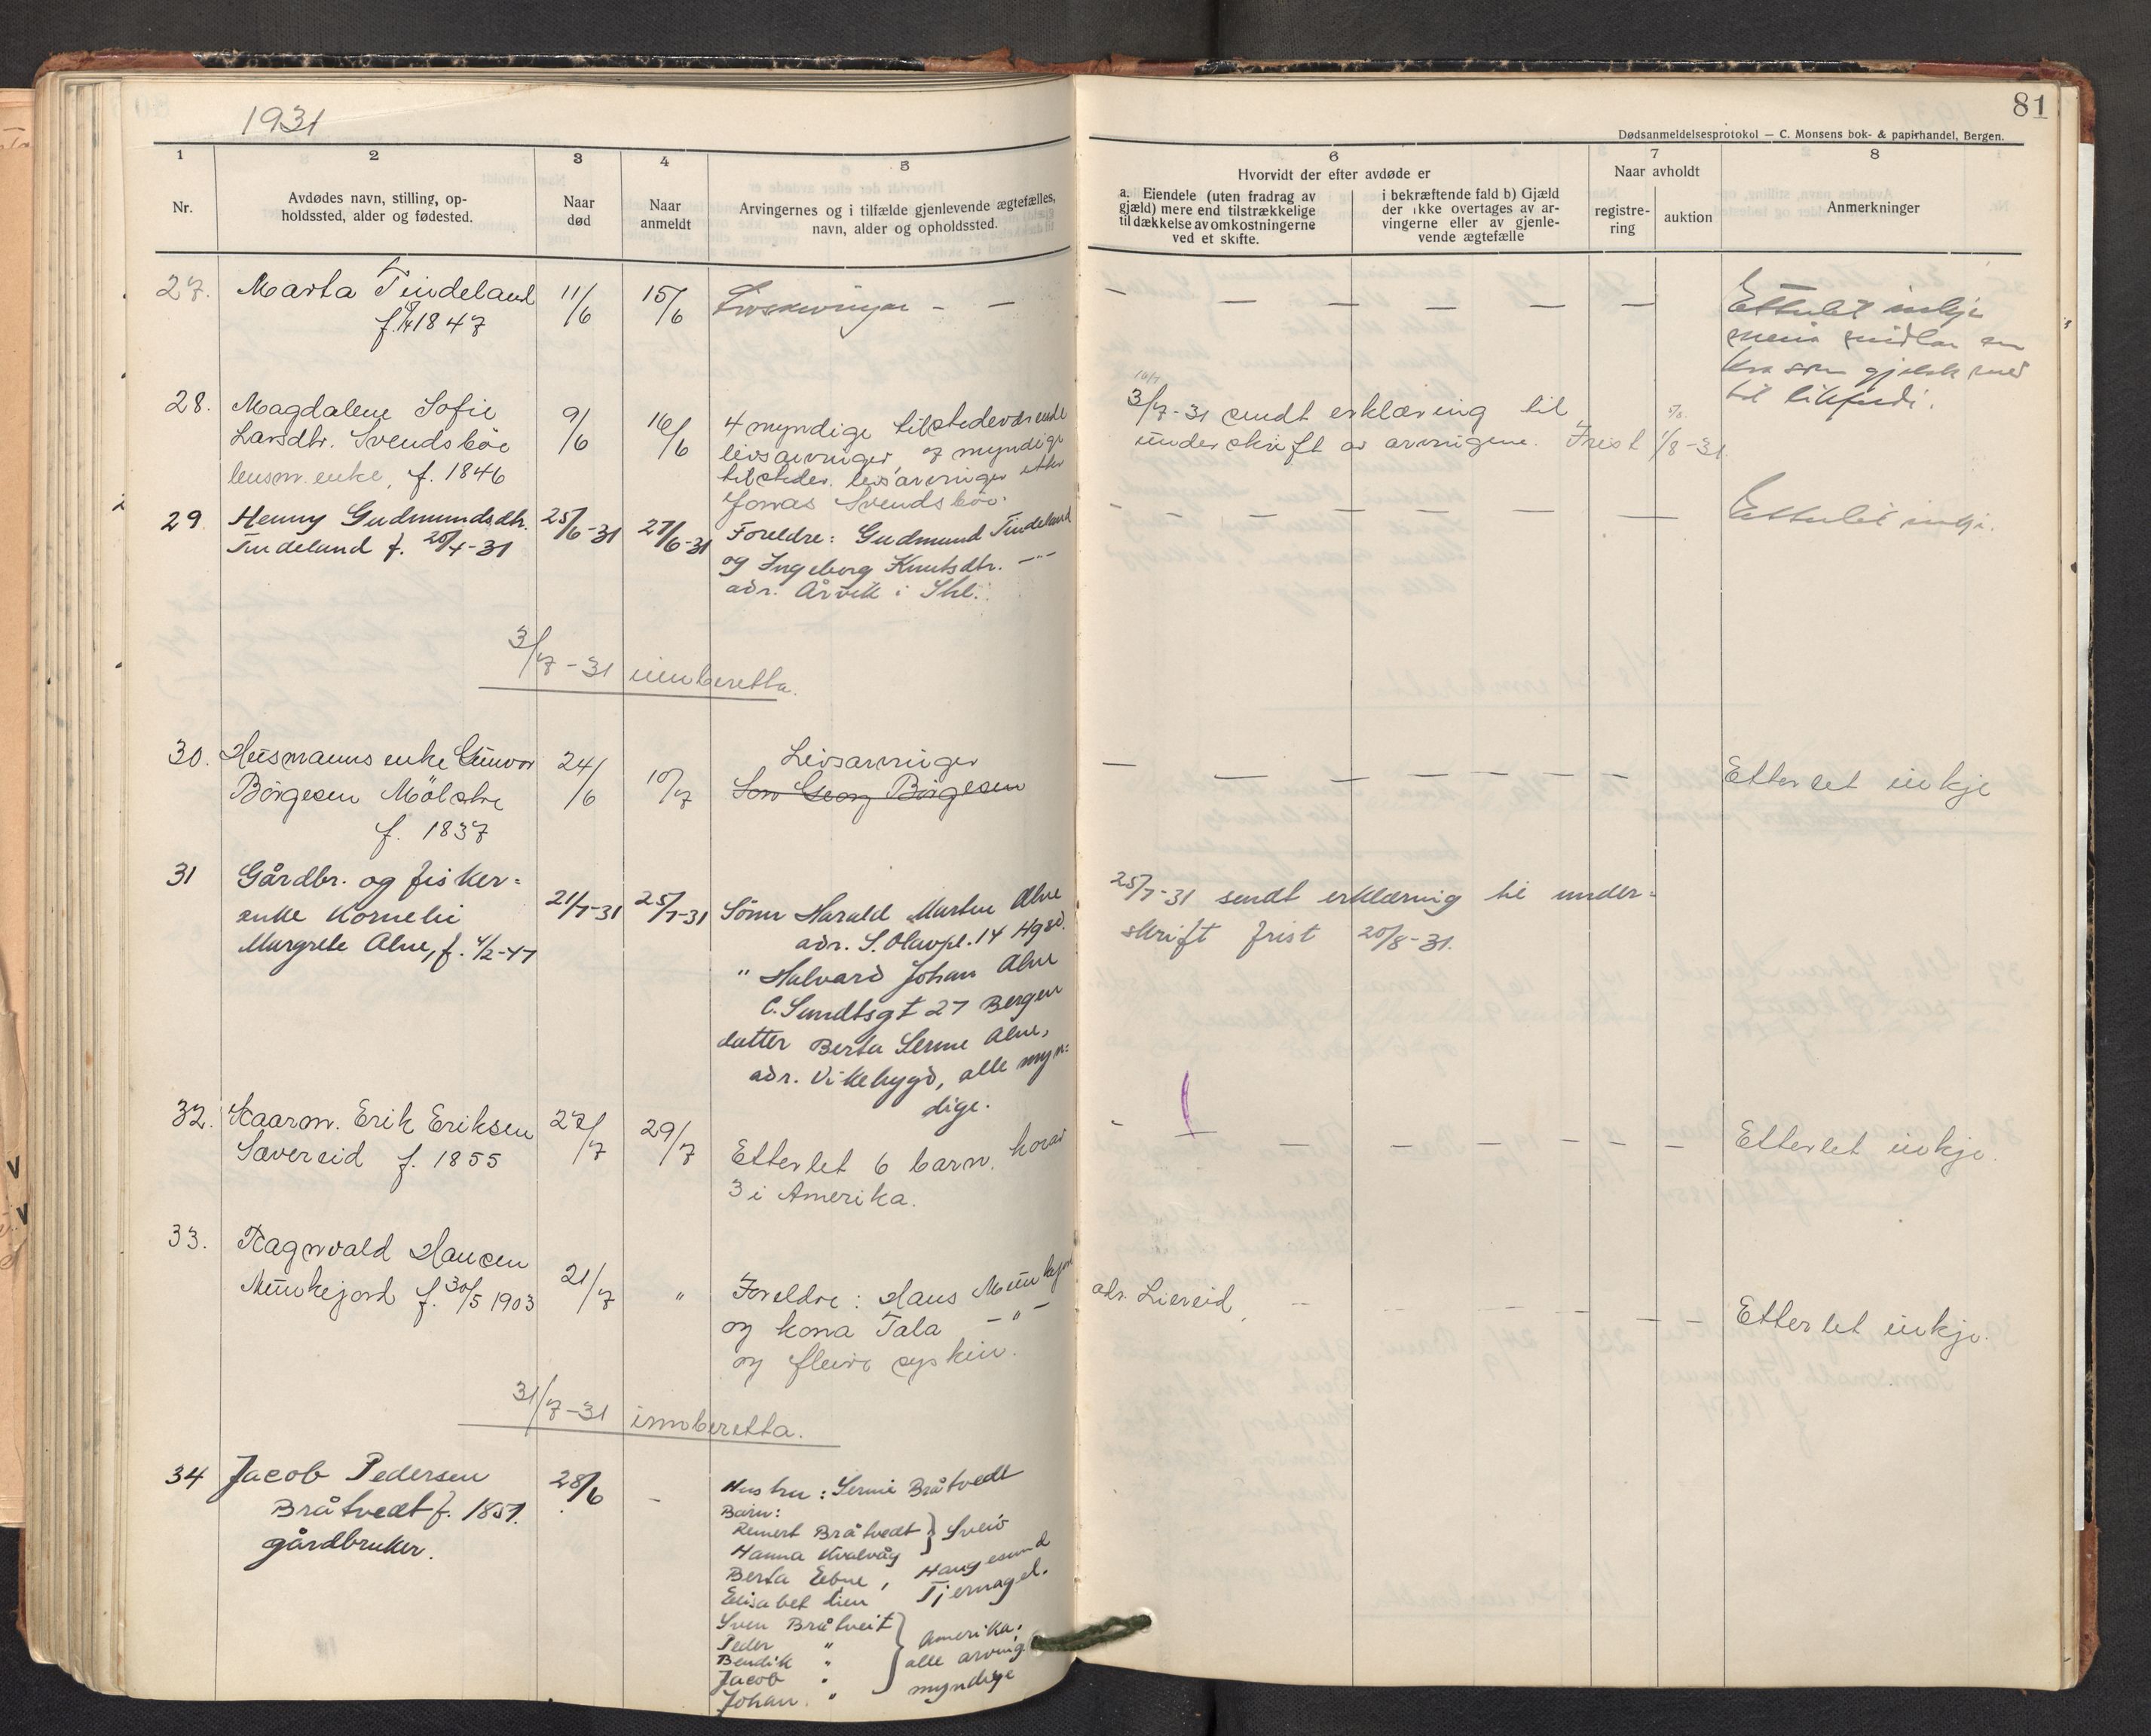 1931
81
Dødsanmeldelsesprotokol — C. Monsens bok- & papirhandel, Bergen.
1 2 3 4 5 6 7 8
Nr.
Avdødes navn, stilling, op-
holdssted, alder og fødested.
Naar
død
Naar
anmeldt
Arvingernes og i tilfælde gjenlevende ægtefælles,
navn, alder og opholdssted.
Hvorvidt der efter avdøde er
a. Eiendele (uten fradrag av
gjæld) mere end tilstrækkelige
til dækkelse av omkostningerne
ved et skifte.
i bekræftende fald b) Gjæld
der ikke overtages av ar-
vingerne eller av gjenle-
vende ægtefælle
Naar avholdt
registre-
ring
auktion
Anmerkninger
27. Marta Tindeland 11/6 15/6 Livsarvingar - —
f. 1847
Etterlet inkje
til likferdi.
28. Magdalene Sofie 9/6 16/6 4 myndige tilstedeværende
Larsdtr. Svendsbøe livsarvinger, og myndige
lensm. enke, f. 1846 tilsteder. livsarvinger etter
Jonas Svendsbøe.
3/7-31 sendt erklæring til
underskrift av arvingene. Frist 1/8-31
29. Henny Gudmundsdtr. 25/6-31 27/6-31 Foreldre: Gudmund Tindeland
Tindeland f. 20/4-31 og Ingeborg Knutsdtr. —"—
adr. Årvik i Skl.
Etterlet inkje.
3/7-31 innberetta.
30. Husmanns enke Gunvor 24/6 10/7 Livsarvinger
Børgesen Mölstre Son Georg Börgesen
f. 1837
Etterlet inkje
31 Gårdbr. og fisker-
enke Kornelie 21/7-31 25/7-31 Sönn Harald Martin Alne
Margrete Alne, f. 4/2-47 adr. S. Olavpl. 14 Hgsd.
" Halvard Johan Alne
C. Sundtsgt 27 Bergen
datter Berta Serine Alne,
adr. Vikebygd, alle myn-
dige.
25/7-31 sendt erklæring til under-
skrift frist 20/8-31.
32. Kaarm. Erik Eriksen 27/7 29/7 Etterlet 6 barn, horav
Sævereid f. 1855 3 i Amerika.
Etterlet inkje.
33. Ragnvald Hansen 21/7 " Foreldre: Hans Munkejord
Munkejord f. 30/5 1903 og kona Tala —"—
og fleire syskin.
adr. Liereid,
Etterlet inkje.
31/7-31 innberetta.
34 Jacob Pedersen 28/6 - Hustru: Serine Bråtvedt
Bråtvedt f. 1851. Barn:
gårdbruker. Reinert Bråtvedt } Sveio
Hanna Kvalvåg
Berta Ebne, Haugesund
Elisabet Lien Tjernagel.
Sven Bråtveit } Amerika,
Peder " alle arving
Bendik " myndige
Jacob "
Johan "